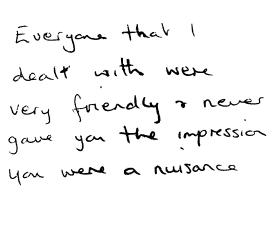 Everyone that I
dealt with were
very friendly & never
gave you the impression
you were a nuisance